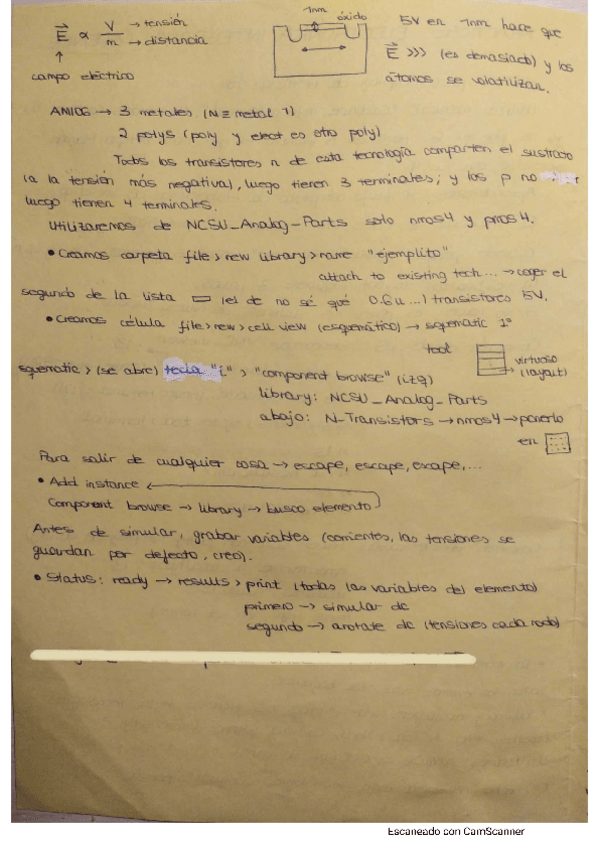 E ∝ V/m → tensión → distancia
↑
campo eléctrico
1nm óxido
5V en 1nm hace que
E >>> (es demasiado) y los
átomos se volatilizan.
AMI06 → 3 metales (N ≡ metal 1)
2 polys (poly y elect es otro poly)
Todos los transistores n de esta tecnología comparten el sustrato
(a la tensión más negativa), luego tienen 3 terminales; y los p no
luego tienen 4 terminales.
Utilizaremos de NCSU_Analog_Parts solo nmos4 y pmos4.
• Creamos carpeta file > new library > name "ejemplito"
attach to existing tech... → coger el
segundo de la lista (el de no sé qué 0.6u...) transistores 5V.
• Creamos célula file > new > cell view (esquemático) → squematic 1º
tool
virtuoso
(layout)
squematic > (se abre) tecla "i" > "component browse" (izq)
library: NCSU_Analog_Parts
abajo: N-Transistors → nmos4 → ponerlo
en
Para salir de cualquier cosa → escape, escape, escape,...
• Add instance
Component browse → library → busco elemento
Antes de simular, grabar variables (corrientes, las tensiones se
guardan por defecto, creo).
• Status: ready → results > print (todas las variables del elemento)
primero → simular dc
segundo → anotate dc (tensiones cada nodo)
Escaneado con CamScanner